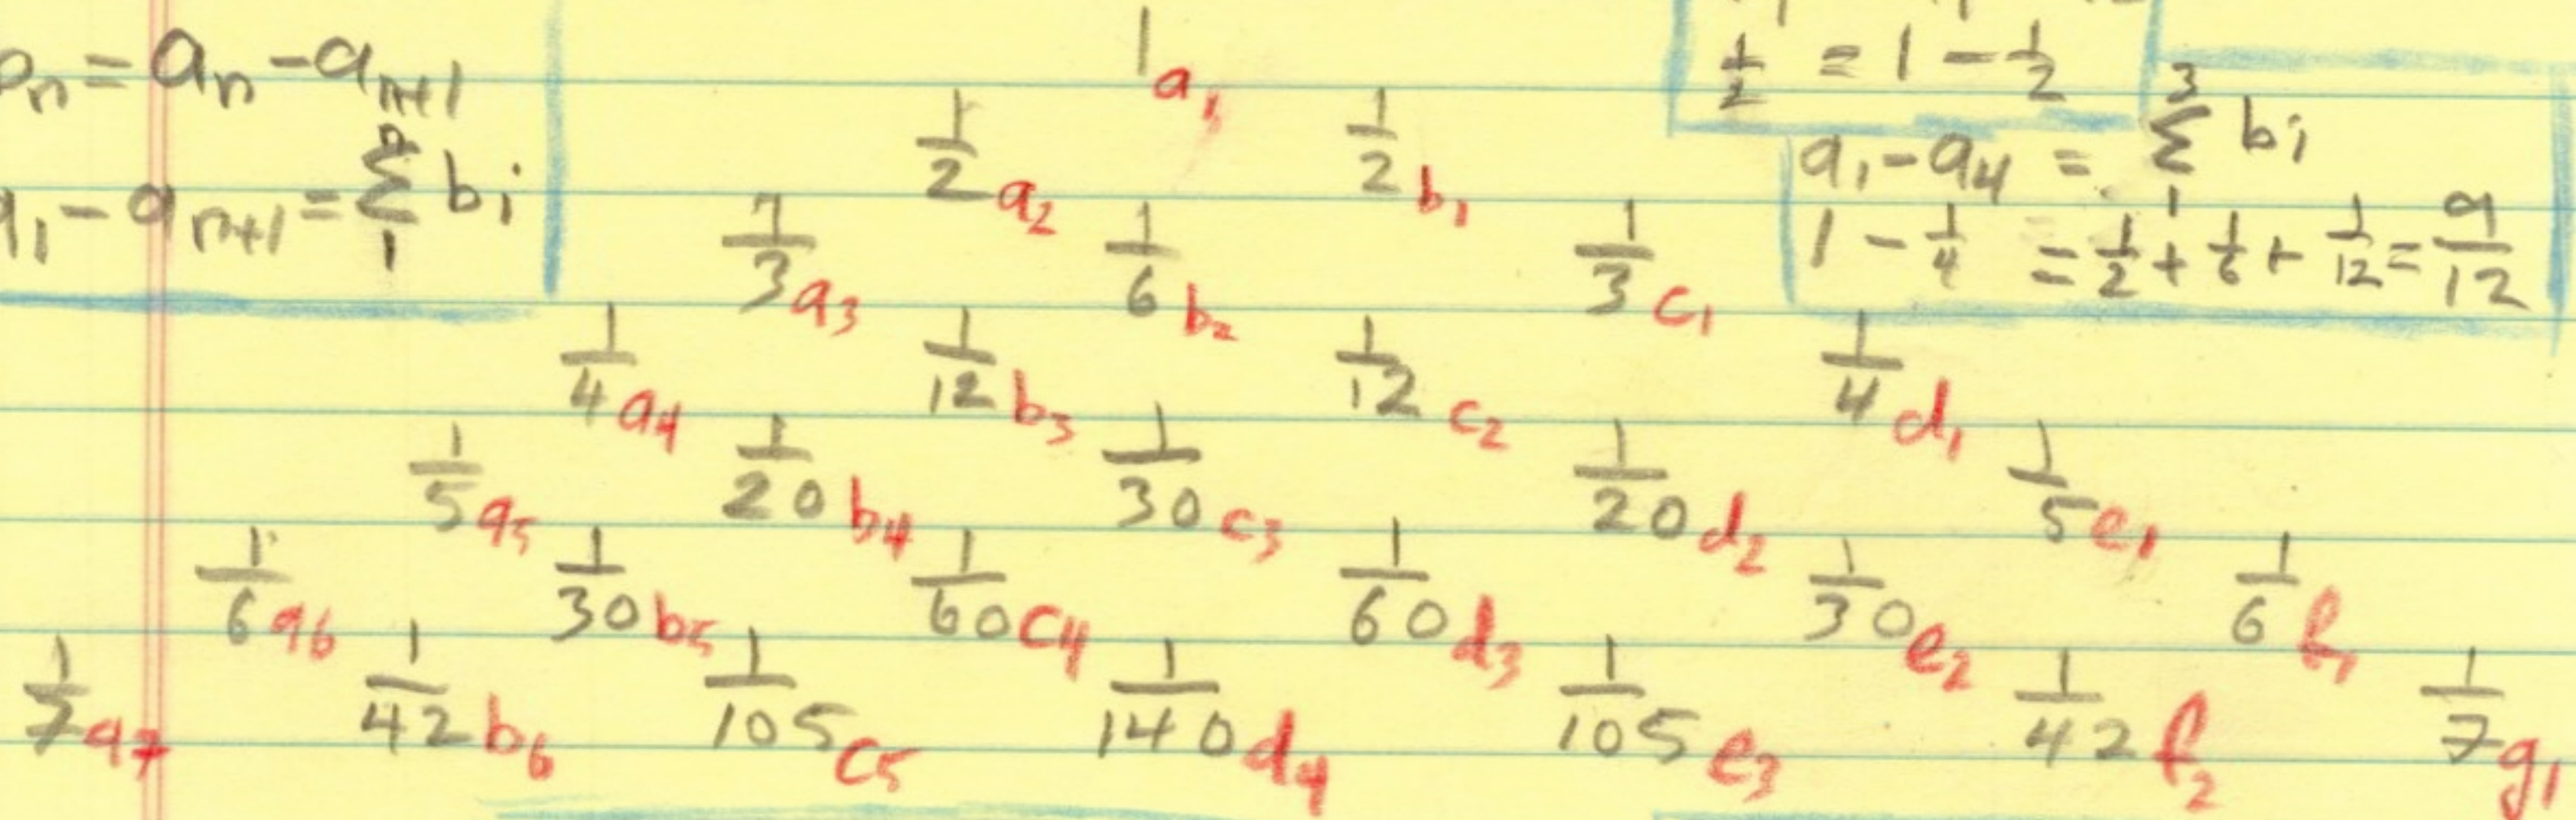 bn = an - an+1
a1 - an+1 = n Σ 1 bi
1/2 = 1 - 1/2
a1 - a4 = 3 Σ 1 bi
1 - 1/4 = 1/2 + 1/6 + 1/12 = 9/12
1 a1
1/2 a2 1/2 b1
1/3 a3 1/6 b2 1/3 c1
1/4 a4 1/12 b3 1/12 c2 1/4 d1
1/5 a5 1/20 b4 1/30 c3 1/20 d2 1/5 e1
1/6 a6 1/30 b5 1/60 c4 1/60 d3 1/30 e2 1/6 f1
1/7 a7 1/42 b6 1/105 c5 1/140 d4 1/105 e3 1/42 f2 1/7 g1